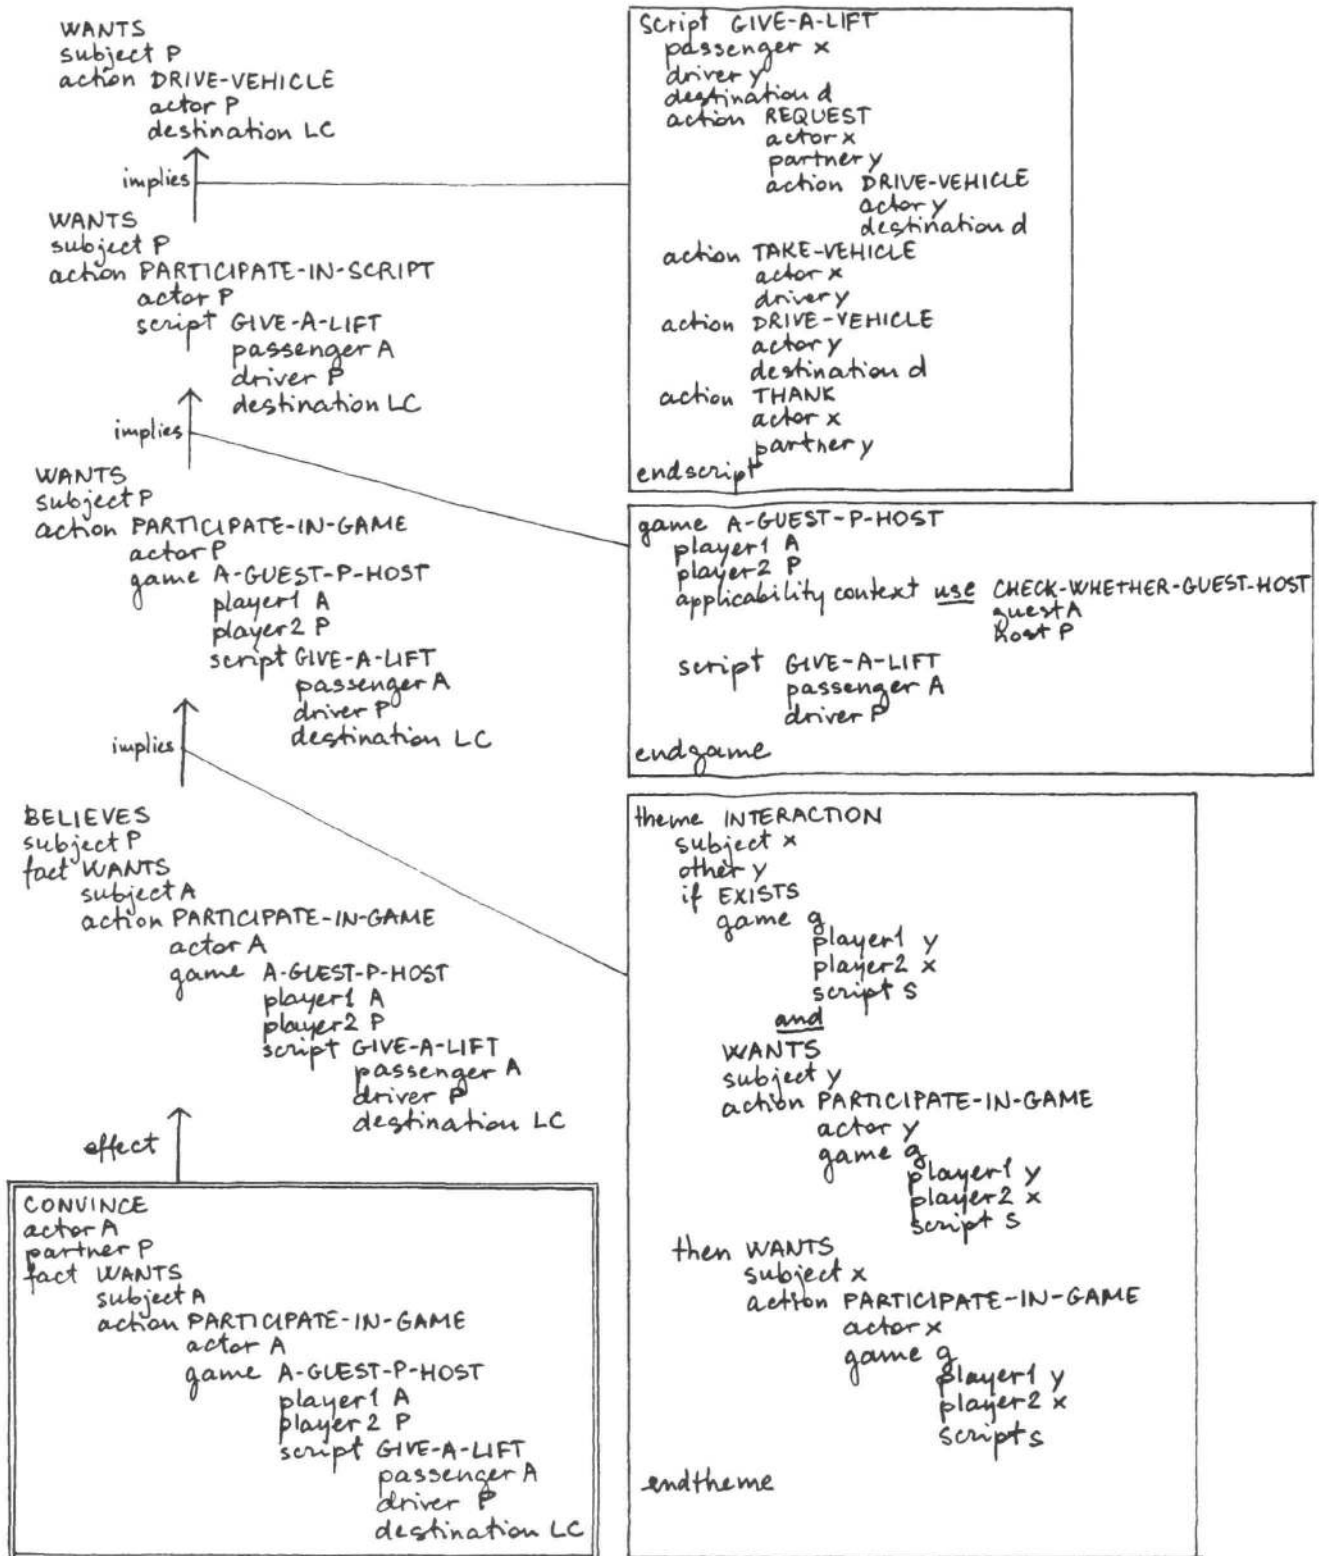 WANTS
subject P
action DRIVE-VEHICLE
actor P
destination LC
implies
WANTS
subject P
action PARTICIPATE-IN-SCRIPT
actor P
script GIVE-A-LIFT
passenger A
driver P
destination LC
implies
WANTS
subject P
action PARTICIPATE-IN-GAME
actor P
game A-GUEST-P-HOST
player1 A
player2 P
script GIVE-A-LIFT
passenger A
driver P
destination LC
implies
BELIEVES
subject P
fact WANTS
subject A
action PARTICIPATE-IN-GAME
actor A
game A-GUEST-P-HOST
player1 A
player2 P
script GIVE-A-LIFT
passenger A
driver P
destination LC
effect
CONVINCE
actor A
partner P
fact WANTS
subject A
action PARTICIPATE-IN-GAME
actor A
game A-GUEST-P-HOST
player1 A
player2 P
script GIVE-A-LIFT
passenger A
driver P
destination LC
script GIVE-A-LIFT
passenger x
driver y
destination d
action REQUEST
actor x
partner y
action DRIVE-VEHICLE
actor y
destination d
action TAKE-VEHICLE
actor x
driver y
action DRIVE-VEHICLE
actor y
destination d
action THANK
actor x
partner y
endscript
game A-GUEST-P-HOST
player1 A
player2 P
applicability context use CHECK-WHETHER-GUEST-HOST
guest A
host P
script GIVE-A-LIFT
passenger A
driver P
endgame
theme INTERACTION
subject x
other y
if EXISTS
game g
player1 y
player2 x
script s
and
WANTS
subject y
action PARTICIPATE-IN-GAME
actor y
game g
player1 y
player2 x
script s
then WANTS
subject x
action PARTICIPATE-IN-GAME
actor x
game g
player1 y
player2 x
script s
endtheme